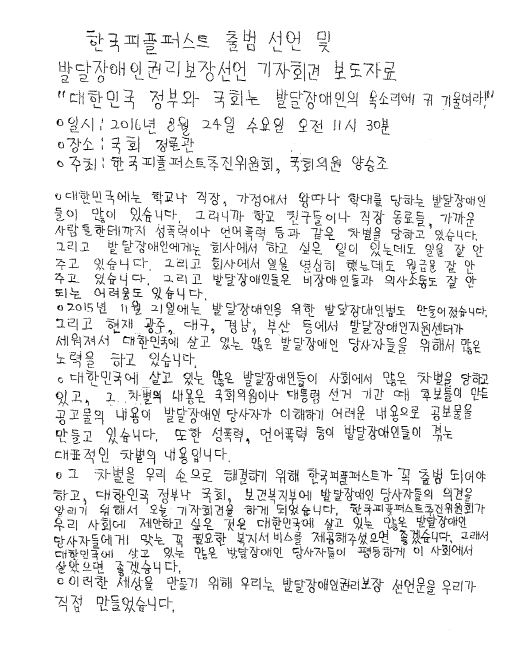 한국피플퍼스트 출범 선언 및
발달장애인권리보장선언 기자회견 보도자료
"대한민국 정부와 국회는 발달장애인의 목소리에 귀 기울여라!"
○일시: 2016년 8월 24일 수요일 오전 11시 30분
○장소: 국회 정론관
○주최: 한국피플퍼스트추진위원회, 국회의원 양승조
○대한민국에는 학교나 직장, 가정에서 왕따나 학대를 당하는 발달장애인
들이 많이 있습니다. 그러니까 학교 친구들이나 직장 동료들, 가까운
사람들한테까지 성폭력이나 언어폭력 등과 같은 차별을 당하고 있습니다.
그리고 발달장애인에게는 회사에서 하고 싶은 일이 있는데도 일을 잘 안
주고 있습니다. 그리고 회사에서 일을 열심히 했는데도 월급을 잘 안
주고 있습니다. 그리고 발달장애인들은 비장애인들과 의사소통도 잘 안
되는 어려움도 있습니다.
○2015년 11월 21일에는 발달장애인을 위한 발달장애인법도 만들어졌습니다.
그리고 현재 광주, 대구, 경남, 부산 등에서 발달장애인지원센터가
세워져서 대한민국에 살고 있는 많은 발달장애인 당사자들을 위해서 많은
노력을 하고 있습니다.
○대한민국에 살고 있는 많은 발달장애인들이 사회에서 많은 차별을 당하고
있고, 그 차별의 내용은 국회의원이나 대통령 선거 기간 때 후보들이 만든
공고물의 내용이 발달장애인 당사자가 이해하기 어려운 내용으로 공보물을
만들고 있습니다. 또한 성폭력, 언어폭력 등이 발달장애인들이 겪는
대표적인 차별의 내용입니다.
○그 차별을 우리 손으로 해결하기 위해 한국피플퍼스트가 꼭 출범 되어야
하고, 대한민국 정부나 국회, 보건복지부에 발달장애인 당사자들의 의견을
알리기 위해서 오늘 기자회견을 하게 되었습니다. 한국피플퍼스트추진위원회가
우리 사회에 제안하고 싶은 것은 대한민국에 살고 있는 많은 발달장애인
당사자들에게 맞는 꼭 필요한 복지서비스를 제공해주셨으면 좋겠습니다. 그래서
대한민국에 살고 있는 많은 발달장애인 당사자들이 평등하게 이 사회에서
살았으면 좋겠습니다.
○이러한 세상을 만들기 위해 우리는 발달장애인권리보장 선언문을 우리가
직접 만들었습니다.